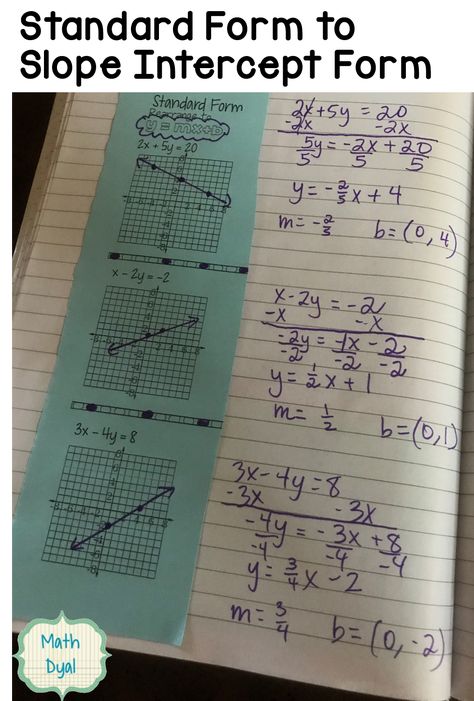 Standard Form to
Slope Intercept Form
Standard Form
Rearrange to
y = mx+b
2x + 5y = 20
2x+5y = 20
-2x -2x
5y = -2x + 20
5 5 5
y = -2/5 x + 4
m = -2/5 b = (0, 4)
x - 2y = -2
x-2y = -2
-x -x
-2y = -1x - 2
-2 -2 -2
y = 1/2 x + 1
m = 1/2 b = (0,1)
3x - 4y = 8
3x-4y = 8
-3x -3x
-4y = -3x + 8
-4 -4 -4
y = 3/4 x - 2
m = 3/4 b = (0, -2)
Math
Dyal